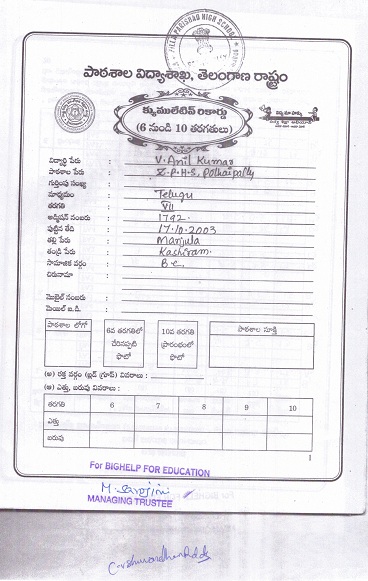 ZILLA PARISHAD HIGH SCHOOL
పాఠశాల విద్యాశాఖ, తెలంగాణ రాష్ట్రం
క్యుములేటివ్ రికార్డు
(6 నుండి 10 తరగతులు)
విద్యార్థి పేరు : V. Anil Kumar
పాఠశాల పేరు : Z.P.H.S, Polkampally
గుర్తింపు సంఖ్య :
మాధ్యమం : Telugu
తరగతి : VII
అడ్మిషన్ నంబరు : 1792.
పుట్టిన తేది : 17.10.2003
తల్లి పేరు : Manjula
తండ్రి పేరు : Kashiram.
సామాజిక వర్గం : B.C.
చిరునామా :
మొబైల్ నంబరు :
మెయిల్ ఐ.డి. :
పాఠశాల లోగో
6వ తరగతిలో చేరినప్పటి ఫొటో
10వ తరగతి ప్రారంభంలో ఫొటో
పాఠశాల సూక్తి
(అ) రక్త వర్గం (బ్లడ్ గ్రూప్) వివరాలు :
(ఆ) ఎత్తు, బరువు వివరాలు :
తరగతి 6 7 8 9 10
ఎత్తు
బరువు
1
For BIGHELP FOR EDUCATION
M. Sarojini
MANAGING TRUSTEE